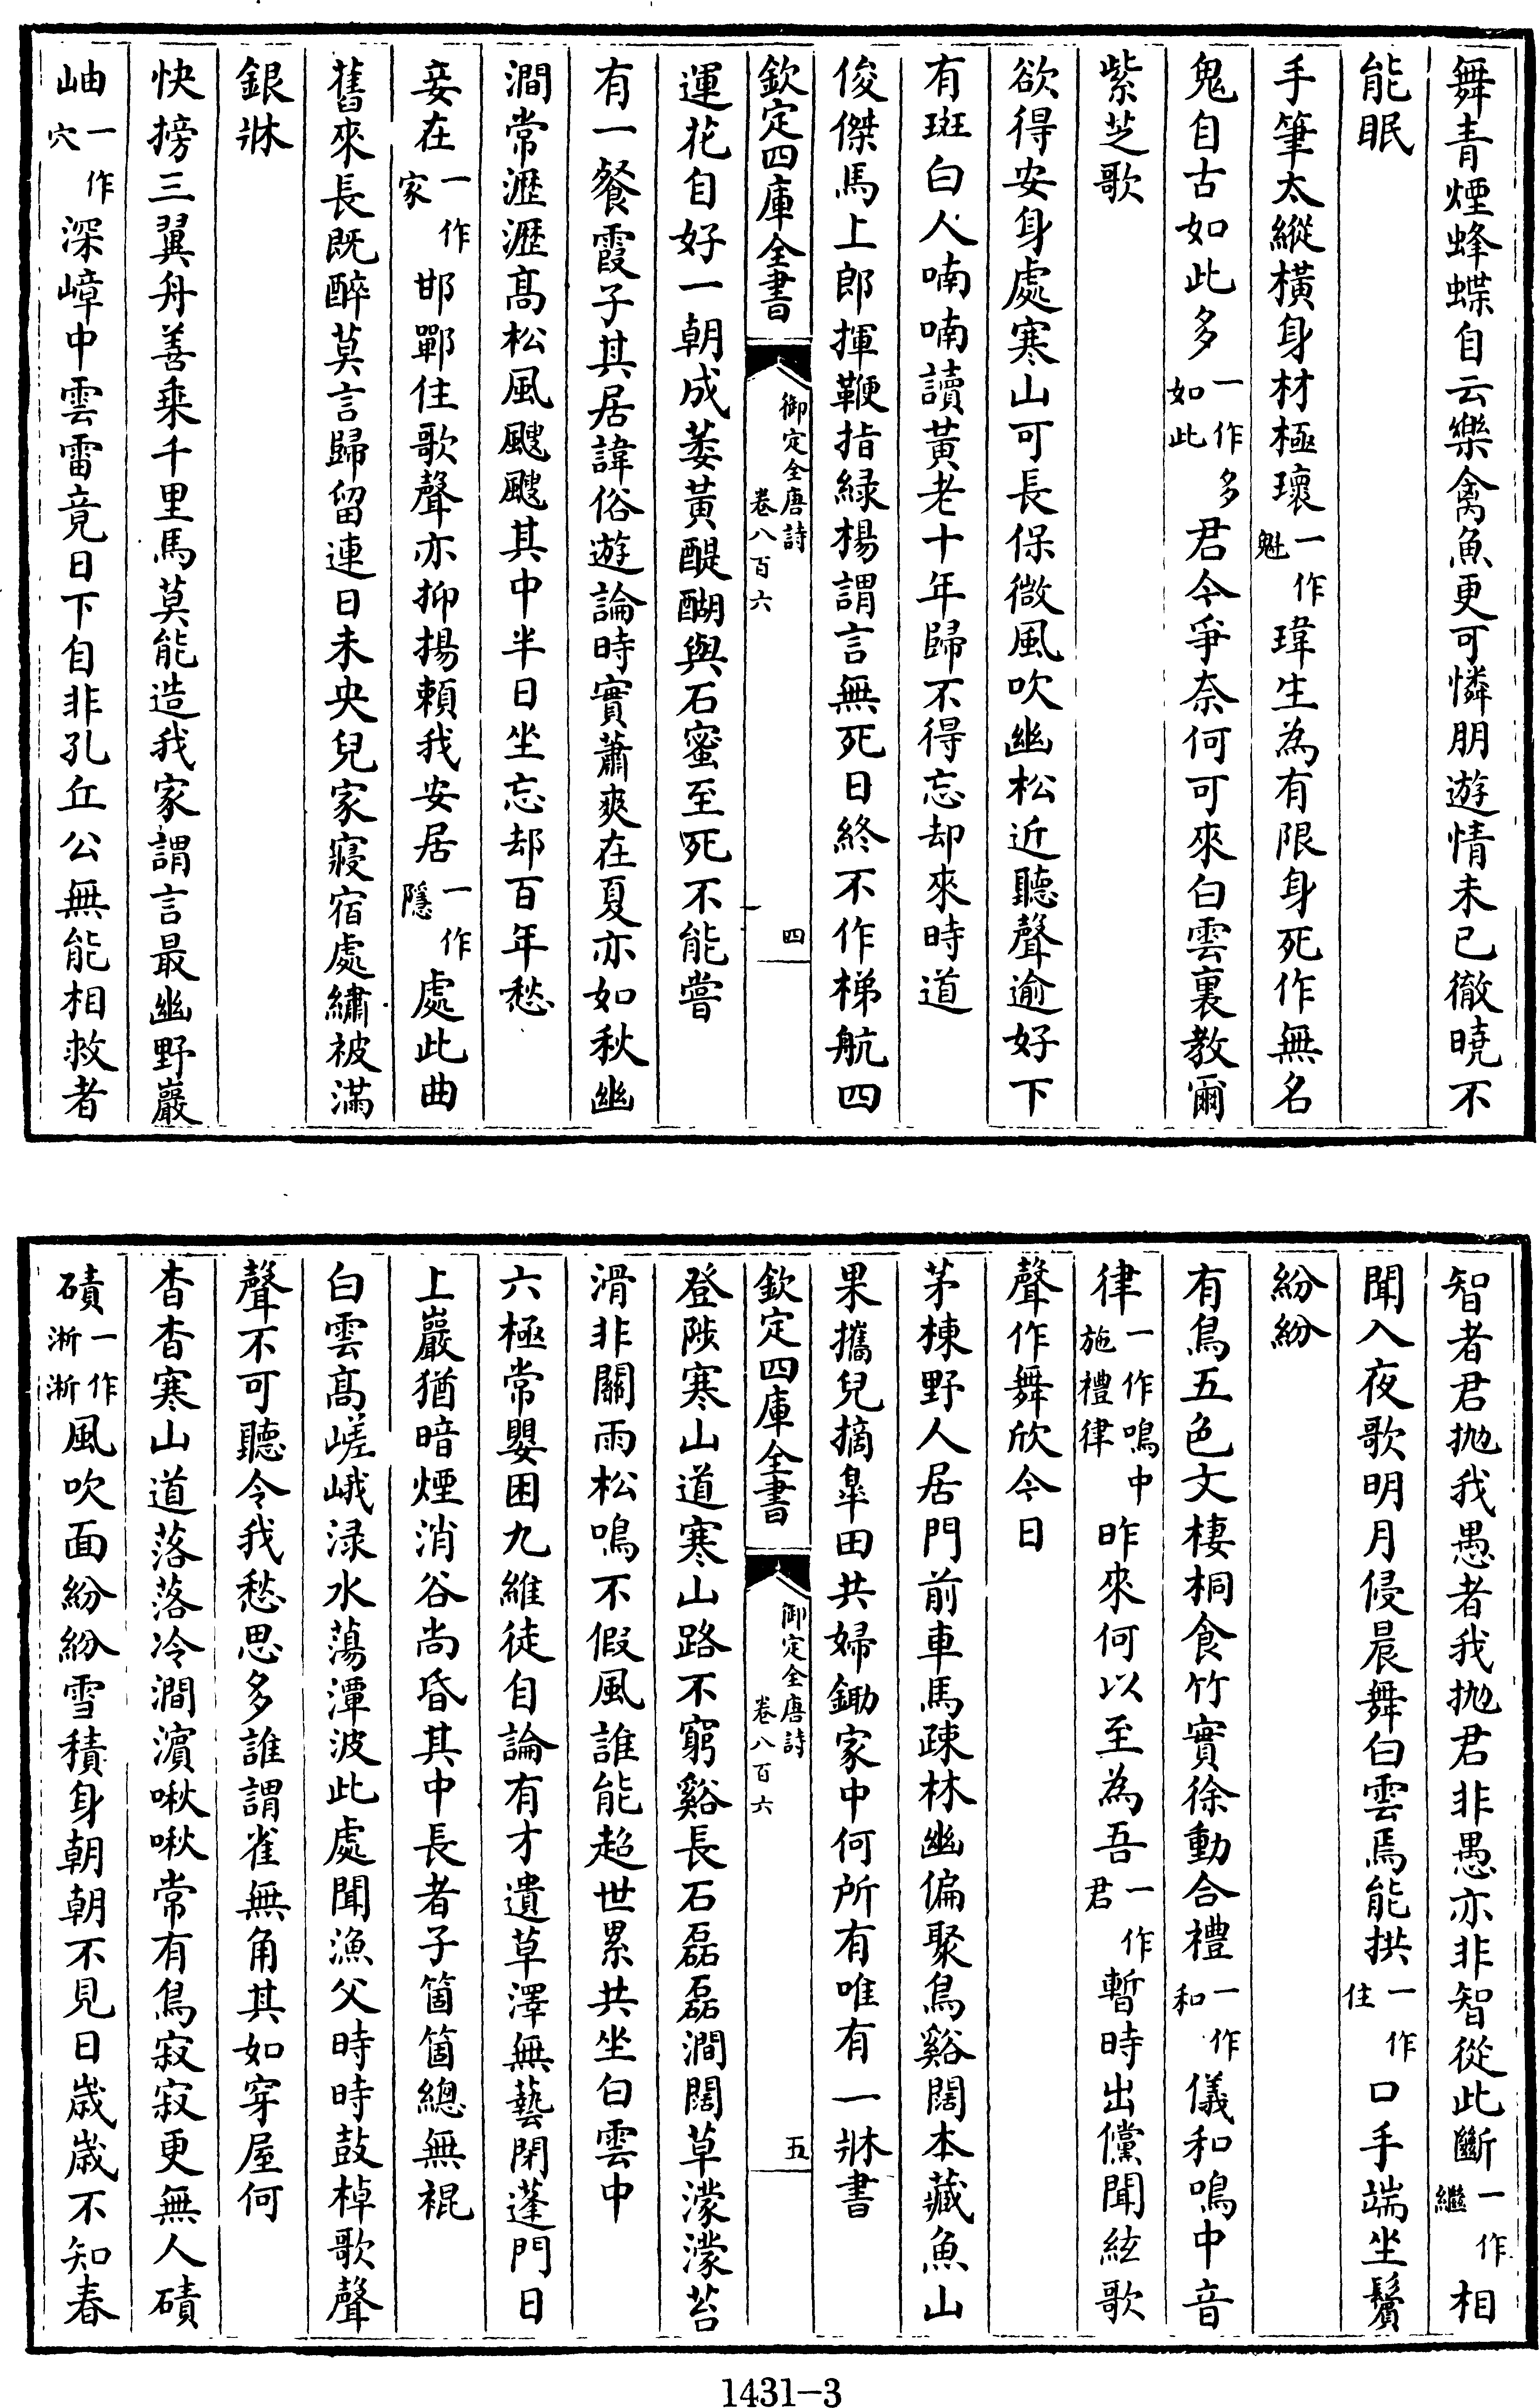 舞青煙蜂蝶自云樂禽魚更可憐朋遊情未已徹曉不
能眠
手筆太縱橫身材極瓌一作魁瑋生為有限身死作無名
鬼自古如此多一作如此多君今爭奈何可來白雲裏教爾
紫芝歌
欲得安身處寒山可長保微風吹幽松近聽聲逾好下
有斑白人喃喃讀黃老十年歸不得忘却來時道
俊傑馬上郎揮鞭指綠楊謂言無死日終不作梯航四
欽定四庫全書 御定全唐詩 卷八百六 四
運花自好一朝成萎黃醍醐與石蜜至死不能嘗
有一餐霞子其居諱俗遊論時實蕭爽在夏亦如秋幽
澗常瀝瀝高松風颼颼其中半日坐忘却百年愁
妾在一作家邯鄲住歌聲亦抑揚賴我安居一作隱處此曲
舊來長既醉莫言歸留連日未央兒家寢宿處繡被滿
銀牀
快搒三翼舟善乗千里馬莫能造我家謂言最幽野巖
岫一作穴深嶂中雲雷竟日下自非孔丘公無能相救者
智者君抛我愚者我抛君非愚亦非智從此斷一作繼相
聞入夜歌明月侵晨舞白雲焉能拱一作住口手端坐鬢
紛紛
有鳥五色文棲桐食竹實徐動合禮一作和儀和鳴中音
律一作鳴中施禮律昨來何以至為吾一作君暫時出儻聞絃歌
聲作舞欣今日
茅棟野人居門前車馬疎林幽偏聚鳥谿闊本藏魚山
果攜兒摘臯田共婦鋤家中何所有唯有一牀書
欽定四庫全書 御定全唐詩 卷八百六 五
登陟寒山道寒山路不窮谿長石磊磊澗闊草濛濛苔
滑非關雨松鳴不假風誰能超世累共坐白雲中
六極常嬰困九維徒自論有才遺草澤無藝閉蓬門日
上巖猶暗煙消谷尚昏其中長者子箇箇總無裩
白雲高嵯峨渌水蕩潭波此處聞漁父時時鼓棹歌聲
聲不可聽令我愁思多誰謂雀無角其如穿屋何
杳杳寒山道落落冷澗濵啾啾常有鳥寂寂更無人磧
磧一作淅淅風吹面紛紛雪積身朝朝不見日歲歲不知春
1431-3